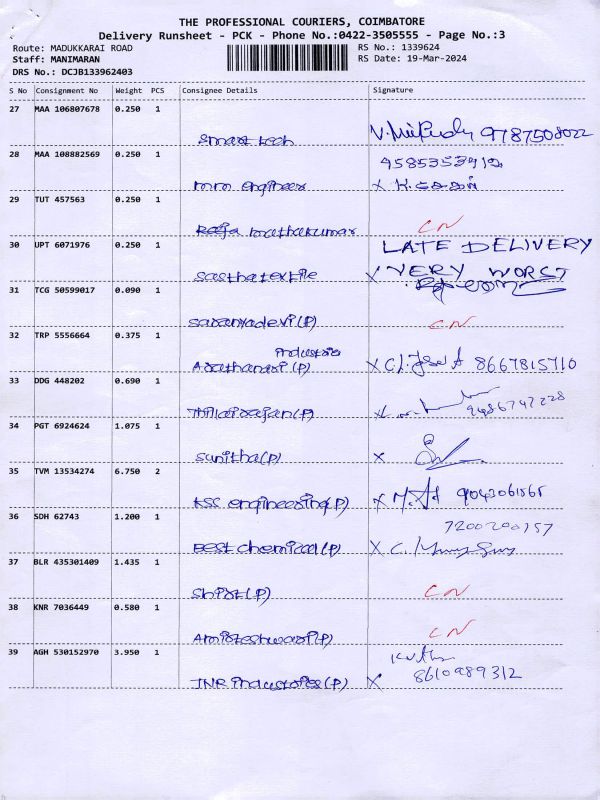 THE PROFESSIONAL COURIERS, COIMBATORE
Delivery Runsheet - PCK - Phone No.:0422-3505555 - Page No.:3
Route: MADUKKARAI ROAD RS No.: 1339624
Staff: MANIMARAN RS Date: 19-Mar-2024
DRS No.: DCJB133962403
S No Consignment No Weight PCS Consignee Details Signature
27 MAA 106807678 0.250 1
Smart tech 9787508022
28 MAA 108882569 0.250 1 9585353912
mm engineer X
29 TUT 457563 0.250 1
Raja CN
30 UPT 6071976 0.250 1 LATE DELIVERY
Sastha textile X VERY WORST
31 TCG 50599017 0.090 1
Saranyadevi(P) CN
32 TRP 5556664 0.375 1 Industris
(P) X 8667815710
33 DDG 448202 0.690 1
Thilairajan(P) 9486747228
34 PGT 6924624 1.075 1
Sunitha(P) X
35 TVM 13534274 6.750 2
KSC engineering(P) X 9043061565
36 SDH 62743 1.200 1 7200200157
Best chemical(P) X
37 BLR 435301409 1.435 1
(P) CN
38 KNR 7036449 0.580 1
(P) CN
39 AGH 530152970 3.950 1
JNR industries(P) X 8610989312